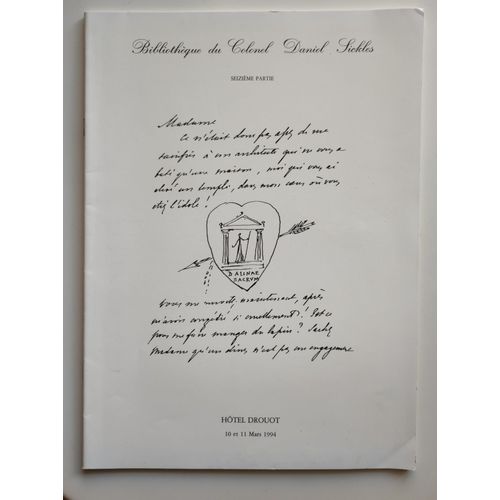 Bibliothèque du Colonel Daniel Sickles
SEIZIÈME PARTIE
Madame
Ce n'était donc pas assez de me
sacrifier à un architecte qui ne vous a
bâti qu'une maison, moi qui vous ai
élevé un temple, dans mon cœur où vous
êtes l'idole!
DASINAE
SACRUM
Vous me invitez, maintenant, après
m'avoir congédié si cruellement! Est ce
pour me faire manger du lapin? Sachez
Madame qu'un dîner n'est pas un engagement
HÔTEL DROUOT
10 et 11 Mars 1994